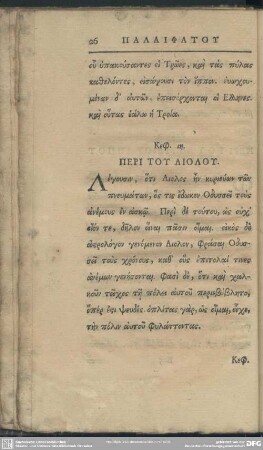 26 ΠΑΛΑΙΦΑΤΟΥ
οὖ ὑπακούσαντες οἱ Τρῶες, καὶ τὰς πύλας
καθελόντες, εἰσάγουσι τὸν ἵππον. εὐωχου-
μένων δ' αὐτῶν ἐπεισέρχονται οἱ Ἕλληνες.
καὶ οὕτως ἑάλω ἡ Τροία.
Κεφ. ιή.
ΠΕΡΙ ΤΟΥ ΑΙΟΛΟΥ.
Λέγουσιν, ὅτι Αἴολος ἦν κυριεύων τῶν
πνευμάτων, ὅς τις ἔδωκεν Ὀδυσσεῖ τοὺς
ἀνέμους ἐν ἀσκῷ. Περὶ δὲ τούτου, ὡς οὐχ
οἷόν τε, δῆλον εἶναι πᾶσιν οἶμαι. εἰκὸς δὲ
ἀστρολόγον γενόμενον Αἴολον, φράσαι Ὀδυσ-
σεῖ τοὺς χρόνους, καθ' οὓς ἐπιτολαί τινες
ἀνέμων γενήσονται. Φασὶ δὲ, ὅτι καὶ χαλ-
κοῦν τεῖχος τῇ πόλει αὐτοῦ περιεβέβλητο,
ὅπερ ἐστὶ ψευδές. ὁπλίτας γὰρ, ὡς οἶμαι, εἶχε,
τὴν πόλιν αὐτοῦ φυλάττοντας.
Κεφ.